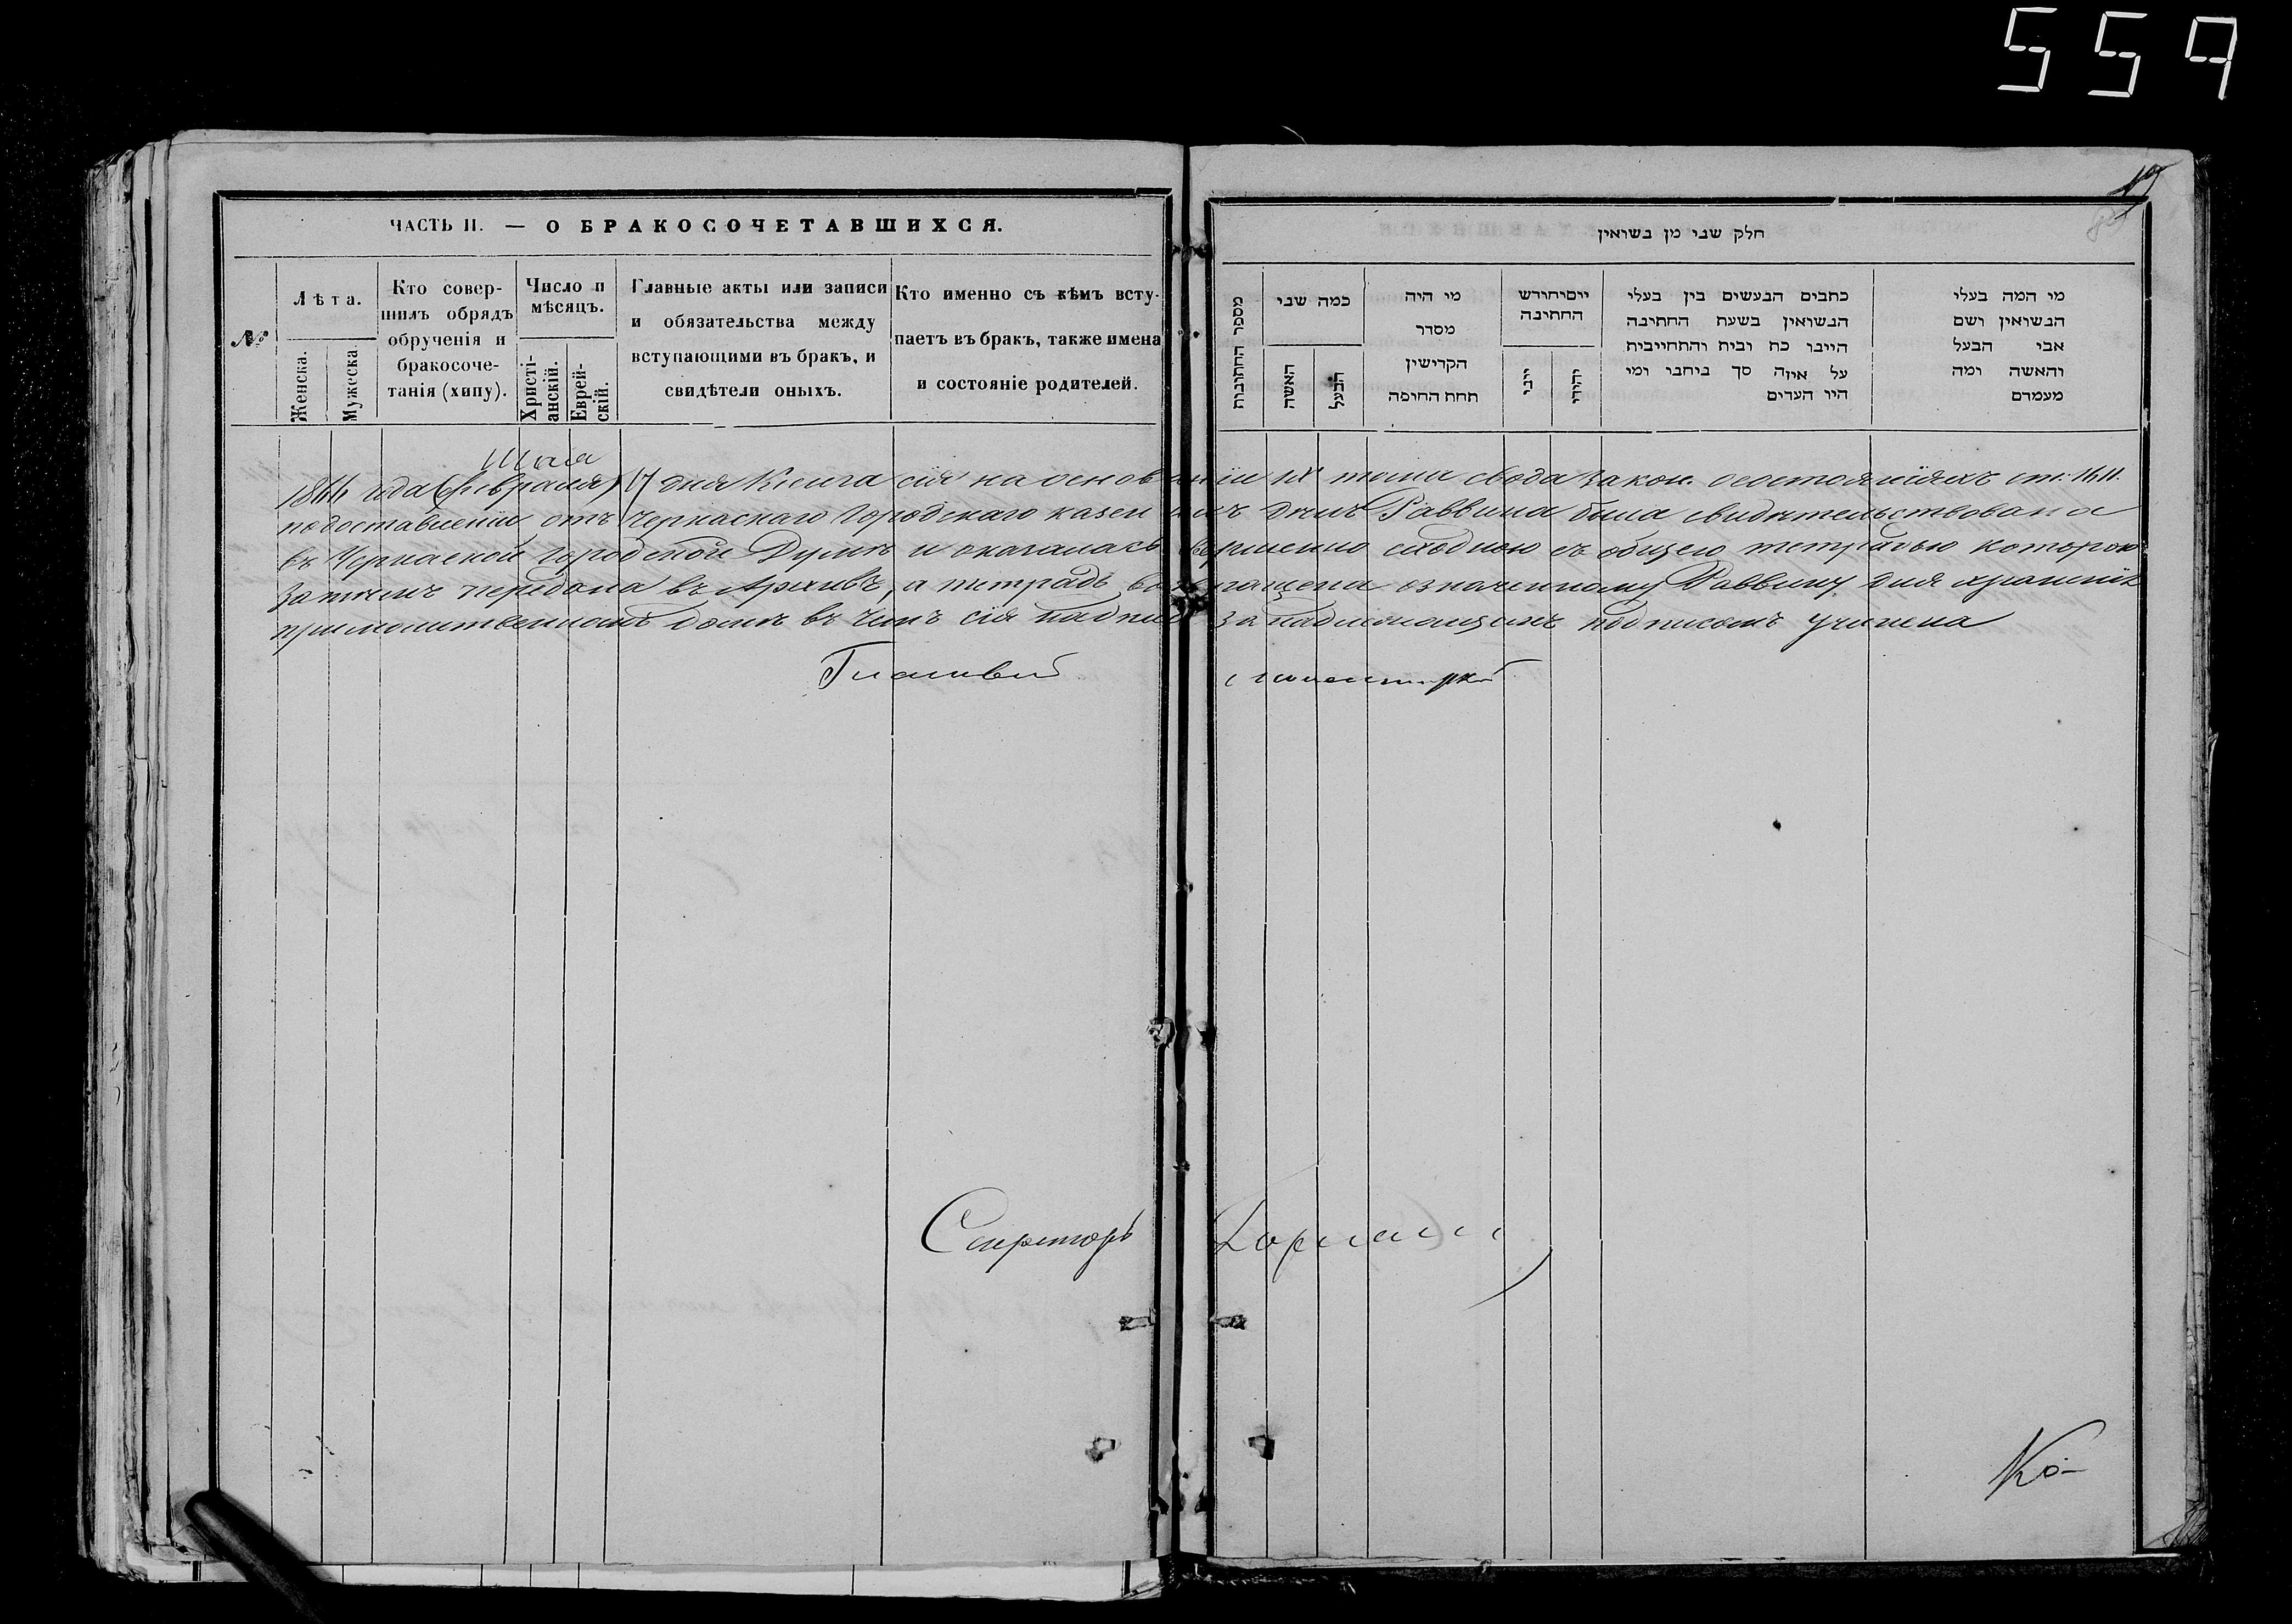 559
ЧАСТЬ II. — О БРАКОСОЧЕТАВШИХСЯ.
№
Лѣта.
Женска.
Мужеска
Кто совер-
шилъ обрядъ
обрученія и
бракосоче-
танія (хипу).
Число и
мѣсяцъ.
Христі-
анскій.
Еврей-
скій.
Главные акты или записи
и обязательства между
вступающими въ бракъ, и
свидѣтели оныхъ.
Кто именно съ кѣмъ всту-
паетъ въ бракъ, также имена
и состояніе родителей.
חלק שני מן נשואין
מספר החתונות
כמה שני
האשה
הבעל
מי היה
מסדר
הקדישין
תחת החופה
יום יחודש
החתונה
יוני
יהודי
כתבים הנעשים בין בעלי
הנשואין בשעת החתונה
היינו כח ובית והתחייבות
על איזה סך ביחבי ומי
היו העדים
מי המה בעלי
הנשואין ושם
אבי הבעל
והאשה ומה
מעמדם
Мая
1866 года (февраля) 17 дня Книга сія на основаніи IX тома свода закон. о состояніяхъ ст.
по доставленіи отъ Черкаскаго Городскаго казен Раввина была свидѣтельствована
въ Черкаской городской Думѣ и оказалась вершенно сходною съ общею тетрадью которою
за тѣмъ передана въ Архивъ, а тетрадь возвращена означенному Раввину для храненія
при молитвенномъ домѣ въ чемъ сія надпись за надлежащимъ подписомъ учинена
Гласный
Секретарь
Ко-